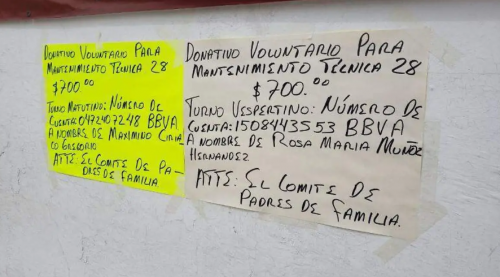 DONATIVO VOLUNTARIO PARA
MANTENIMIENTO TÉCNICA 28
$700.00
TURNO MATUTINO: NÚMERO DE
CUENTA: 0472407248 BBVA
A NOMBRE DE MAXIMINO CIRIA
CO GREGORIO
ATTE: EL COMITE DE PA-
DRES DE FAMILIA
DONATIVO VOLUNTARIO PARA
MANTENIMIENTO TÉCNICA 28
$700.00
TURNO VESPERTINO: NÚMERO DE
CUENTA: 1508443553 BBVA
A NOMBRE DE ROSA MARIA MUÑOZ
HERNANDEZ
ATTE: EL COMITE DE
PADRES DE FAMILIA.